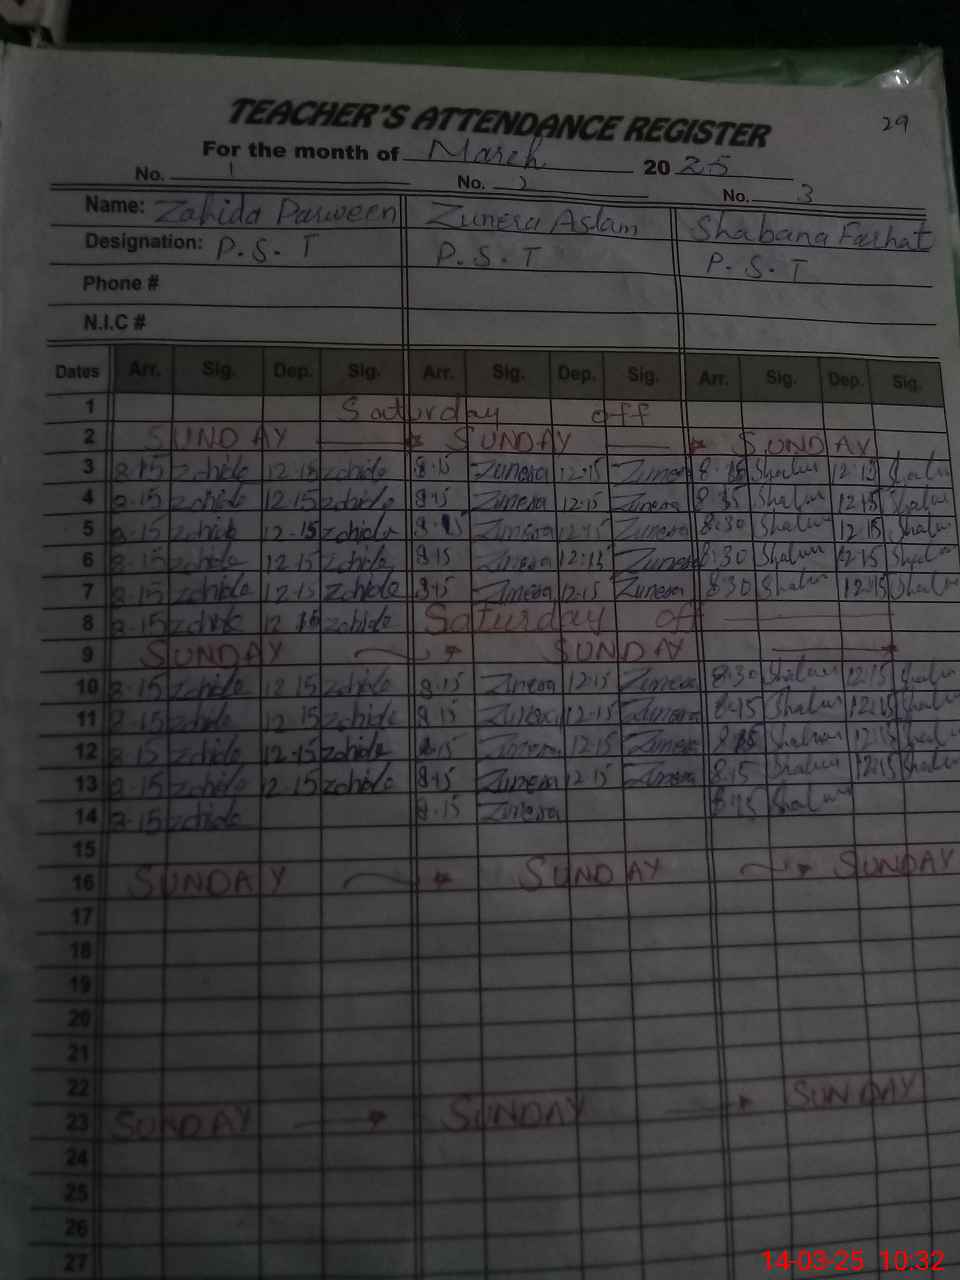 29
TEACHER'S ATTENDANCE REGISTER
For the month of March 2025
No. 1 No. 2 No. 3
Name: Zahida Parween Zunera Aslam Shabana Farhat
Designation: P.S.T P.S.T P.S.T
Phone #
N.I.C #
Dates Arr. Sig. Dep. Sig. Arr. Sig. Dep. Sig. Arr. Sig. Dep. Sig.
1 Saturday off
2 SUNDAY SUNDAY SUNDAY
3 8-15 zahida 12-15 zahida 8-15 Zunera 12-15 Zunera 8-15 12-15
4 8-15 zahida 12-15 zahida 8-15 Zunera 12-15 Zunera 12-15
5 8-15 zahida 12-15 zahida 8-15 Zunera 12-15 Zunera 8:30 12-15
6 8-15 zahida 12-15 zahida 8-15 Zunera 12-15 Zunera 8:30 12-15
7 8-15 zahida 12-15 zahida 8-15 Zunera 12-15 Zunera 8:30 12-15
8 8-15 zahida 12-15 zahida Saturday off
9 SUNDAY SUNDAY
10 8-15 zahida 12-15 zahida 8-15 Zunera 12-15 Zunera 8:30 12-15
11 8-15 zahida 12-15 zahida 8-15 Zunera 12-15 Zunera 8-15 12-15
12 8-15 zahida 12-15 zahida 8-15 Zunera 12-15 Zunera 8-15 12-15
13 8-15 zahida 12-15 zahida 8-15 Zunera 12-15 Zunera 8-15 12-15
14 8-15 zahida 8-15 Zunera 8-15
15
16 SUNDAY SUNDAY SUNDAY
17
18
19
20
21
22
23 SUNDAY SUNDAY SUNDAY
24
25
26
27
14-03-25 10:32